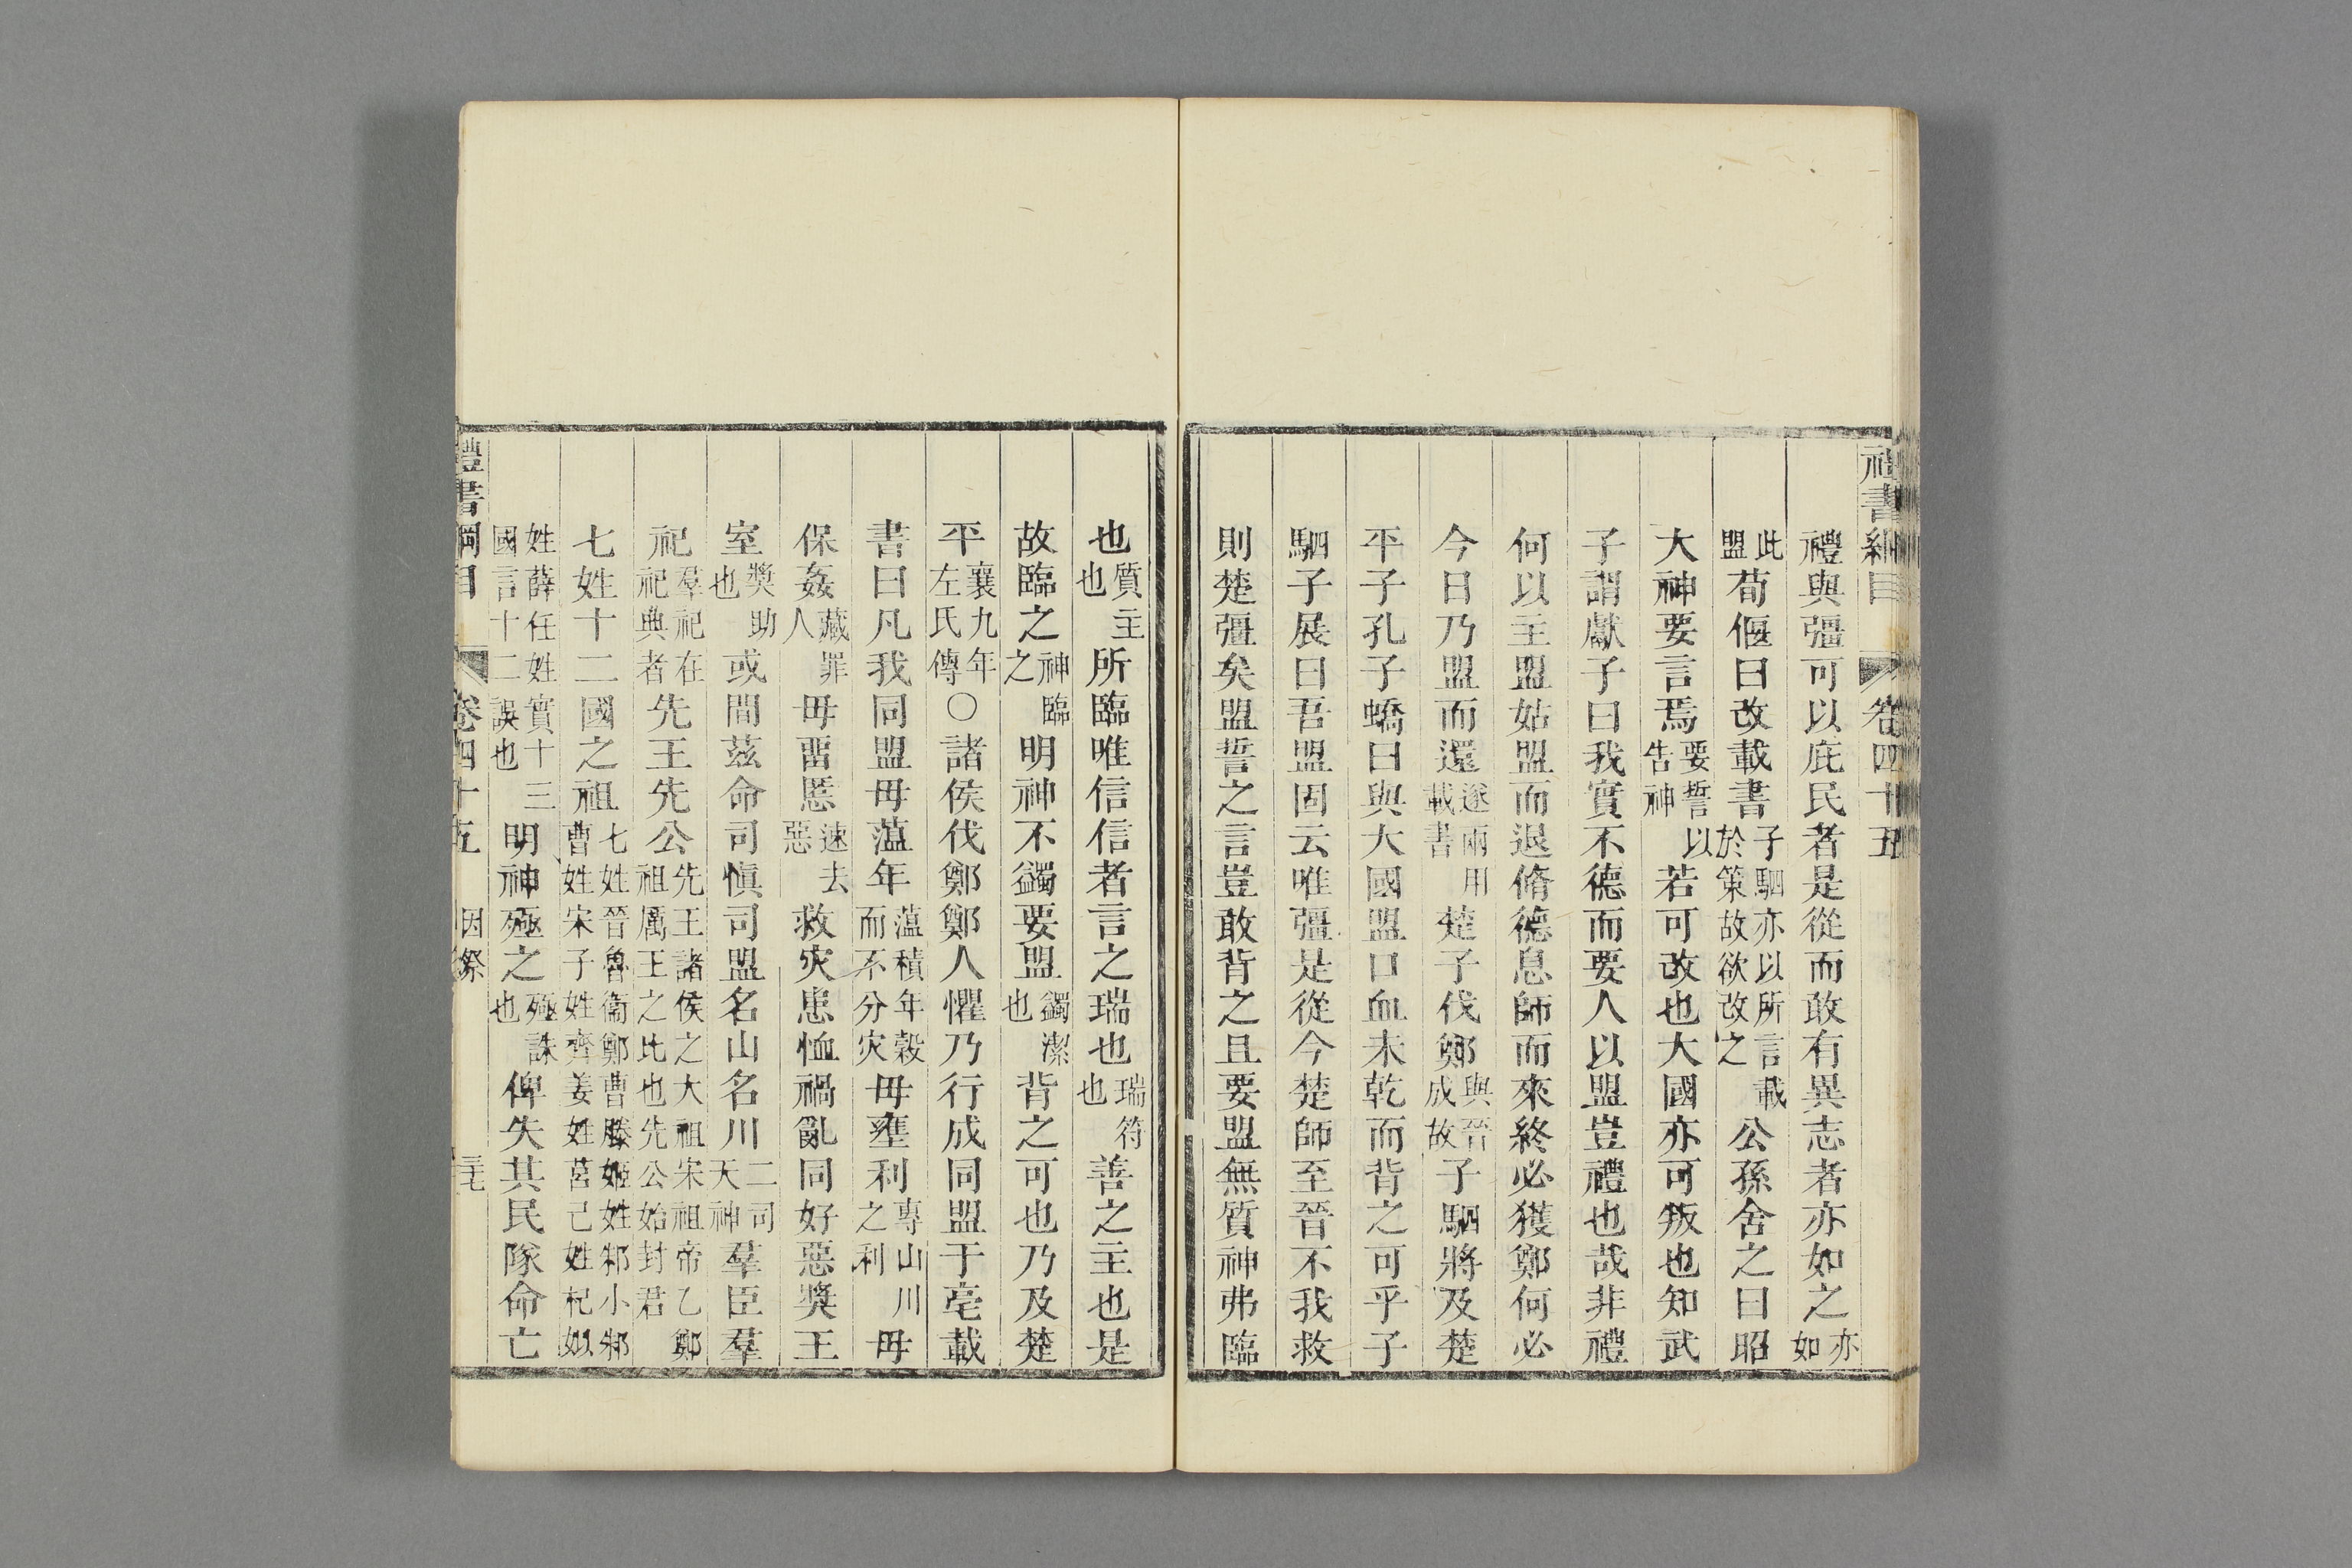 禮書綱目 卷四十五
禮與彊可以庇民者是從而敢有異志者亦如之亦如
此盟荀偃曰改載書子駟亦以所言載於策故欲改之公孫舍之曰昭
大神要言焉要誓以告神若可改也大國亦可叛也知武
子謂獻子曰我實不德而要人以盟豈禮也哉非禮
何以主盟姑盟而退脩德息師而來終必獲鄭何必
今日乃盟而還遂兩用載書楚子伐鄭與晉成故子駟將及楚
平子孔子蟜曰與大國盟口血未乾而背之可乎子
駟子展曰吾盟固云唯彊是從今楚師至晉不我救
則楚彊矣盟誓之言豈敢背之且要盟無質神弗臨
也質主也所臨唯信信者言之瑞也瑞符也善之主也是
故臨之神臨之明神不蠲要盟蠲潔也背之可也乃及楚
平襄九年左氏傳○諸侯伐鄭鄭人懼乃行成同盟于亳載
書曰凡我同盟毋薀年薀積年穀而不分灾毋壅利專山川之利毋
保姦藏罪人毋畱慝速去惡救灾患恤禍亂同好惡奬王
室奬助也或間茲命司愼司盟名山名川二司天神羣臣羣
祀羣祀在祀典者先王先公先王諸侯之大祖宋祖帝乙鄭祖厲王之比也先公始封君
七姓十二國之祖七姓晉魯衞鄭曹滕姬姓邾小邾曹姓宋子姓齊姜姓莒己姓杞姒
姓薛任姓實十三國言十二誤也明神殛之殛誅也俾失其民隊命亡
禮書綱目 卷四十五 因祭 三七